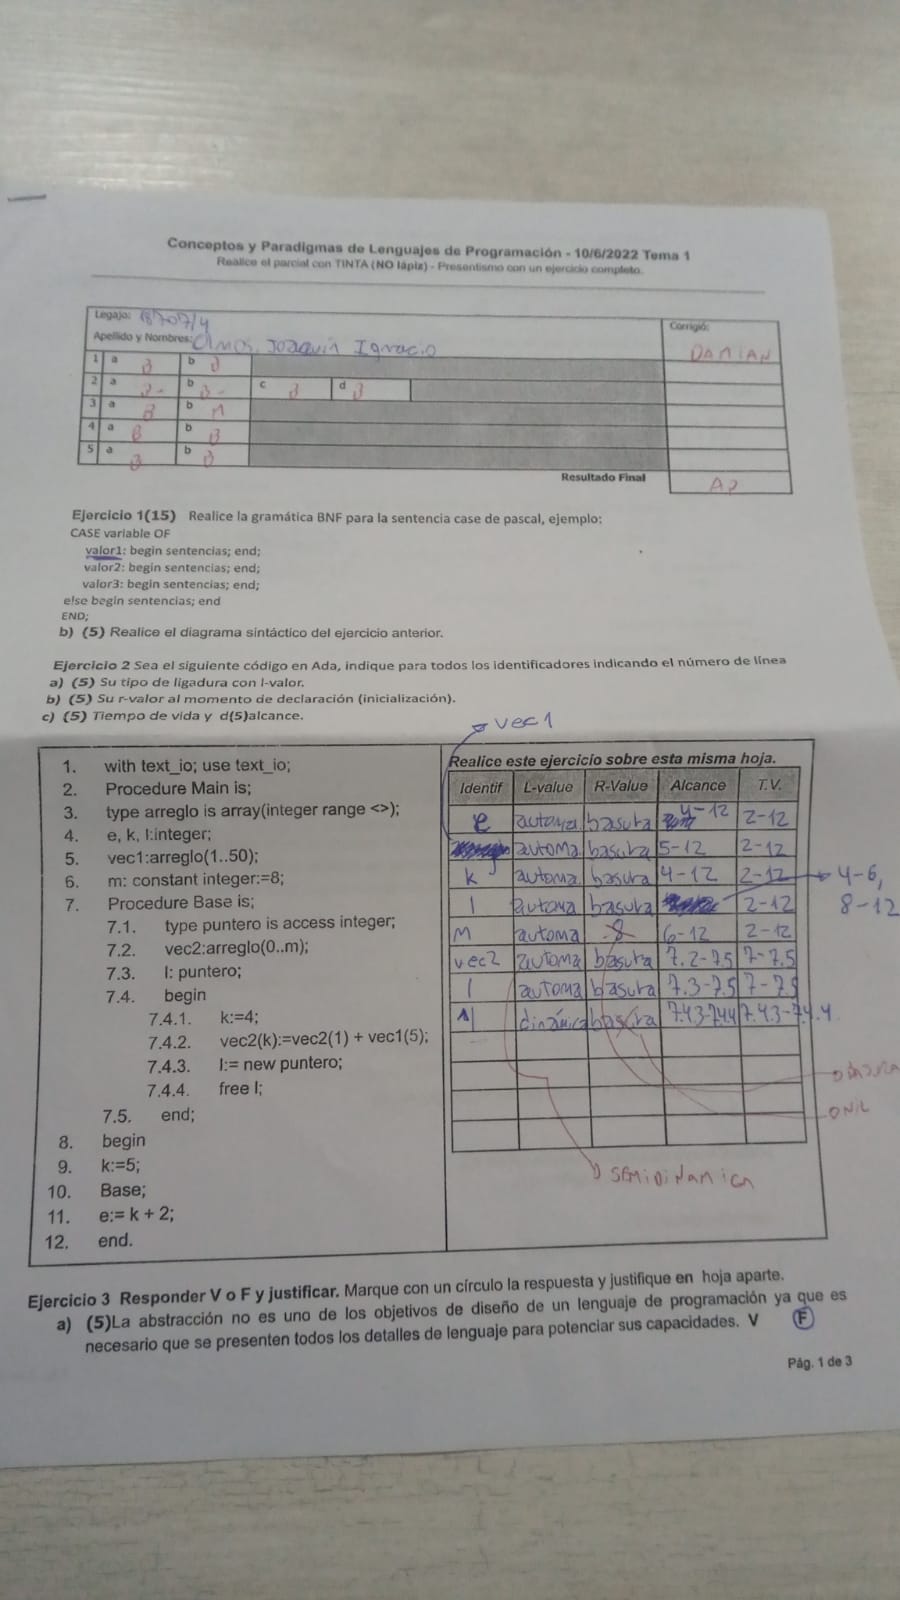 Conceptos y Paradigmas de Lenguajes de Programación - 10/6/2022 Tema 1
Realice el parcial con TINTA (NO lápiz) - Presentismo con un ejercicio completo.
Legajo: 18707/4
Corrigió:
Apellido y Nombres: Olmos, Joaquín Ignacio
DAMIAN
1 a B b B
2 a B- b B- c B d B
3 a B b M
4 a B b B
5 a B b B
Resultado Final
AP
Ejercicio 1(15) Realice la gramática BNF para la sentencia case de pascal, ejemplo:
CASE variable OF
valor1: begin sentencias; end;
valor2: begin sentencias; end;
valor3: begin sentencias; end;
else begin sentencias; end
END;
b) (5) Realice el diagrama sintáctico del ejercicio anterior.
Ejercicio 2 Sea el siguiente código en Ada, indique para todos los identificadores indicando el número de línea
a) (5) Su tipo de ligadura con l-valor.
b) (5) Su r-valor al momento de declaración (inicialización).
c) (5) Tiempo de vida y d(5)alcance.
vec1
1. with text_io; use text_io;
2. Procedure Main is;
3. type arreglo is array(integer range <>);
4. e, k, l:integer;
5. vec1:arreglo(1..50);
6. m: constant integer:=8;
7. Procedure Base is;
7.1. type puntero is access integer;
7.2. vec2:arreglo(0..m);
7.3. l: puntero;
7.4. begin
7.4.1. k:=4;
7.4.2. vec2(k):=vec2(1) + vec1(5);
7.4.3. l:= new puntero;
7.4.4. free l;
7.5. end;
8. begin
9. k:=5;
10. Base;
11. e:= k + 2;
12. end.
Realice este ejercicio sobre esta misma hoja.
Identif L-value R-Value Alcance T.V.
e automa basura 4-12 2-12
automa basura 5-12 2-12
k automa basura 4-12 2-12
l automa basura 2-12
4-6,
8-12
M automa 8 6-12 2-12
vec2 automa basura 7.2-7.5 7-7.5
l automa basura 7.3-7.5 7-7.5
^l dinámica basura 7.4.3-7.4.4 7.4.3-7.4.4
BASURA
NIL
SEMIDINAMICA
Ejercicio 3 Responder V o F y justificar. Marque con un círculo la respuesta y justifique en hoja aparte.
a) (5)La abstracción no es uno de los objetivos de diseño de un lenguaje de programación ya que es
necesario que se presenten todos los detalles de lenguaje para potenciar sus capacidades. V F
Pág. 1 de 3